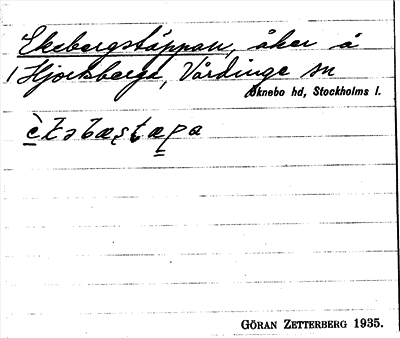 Ekebergstäppan, åker å
Hjortsberga, Vårdinge sn
Öknebo hd, Stockholms l.
GÖRAN ZETTERBERG 1935.